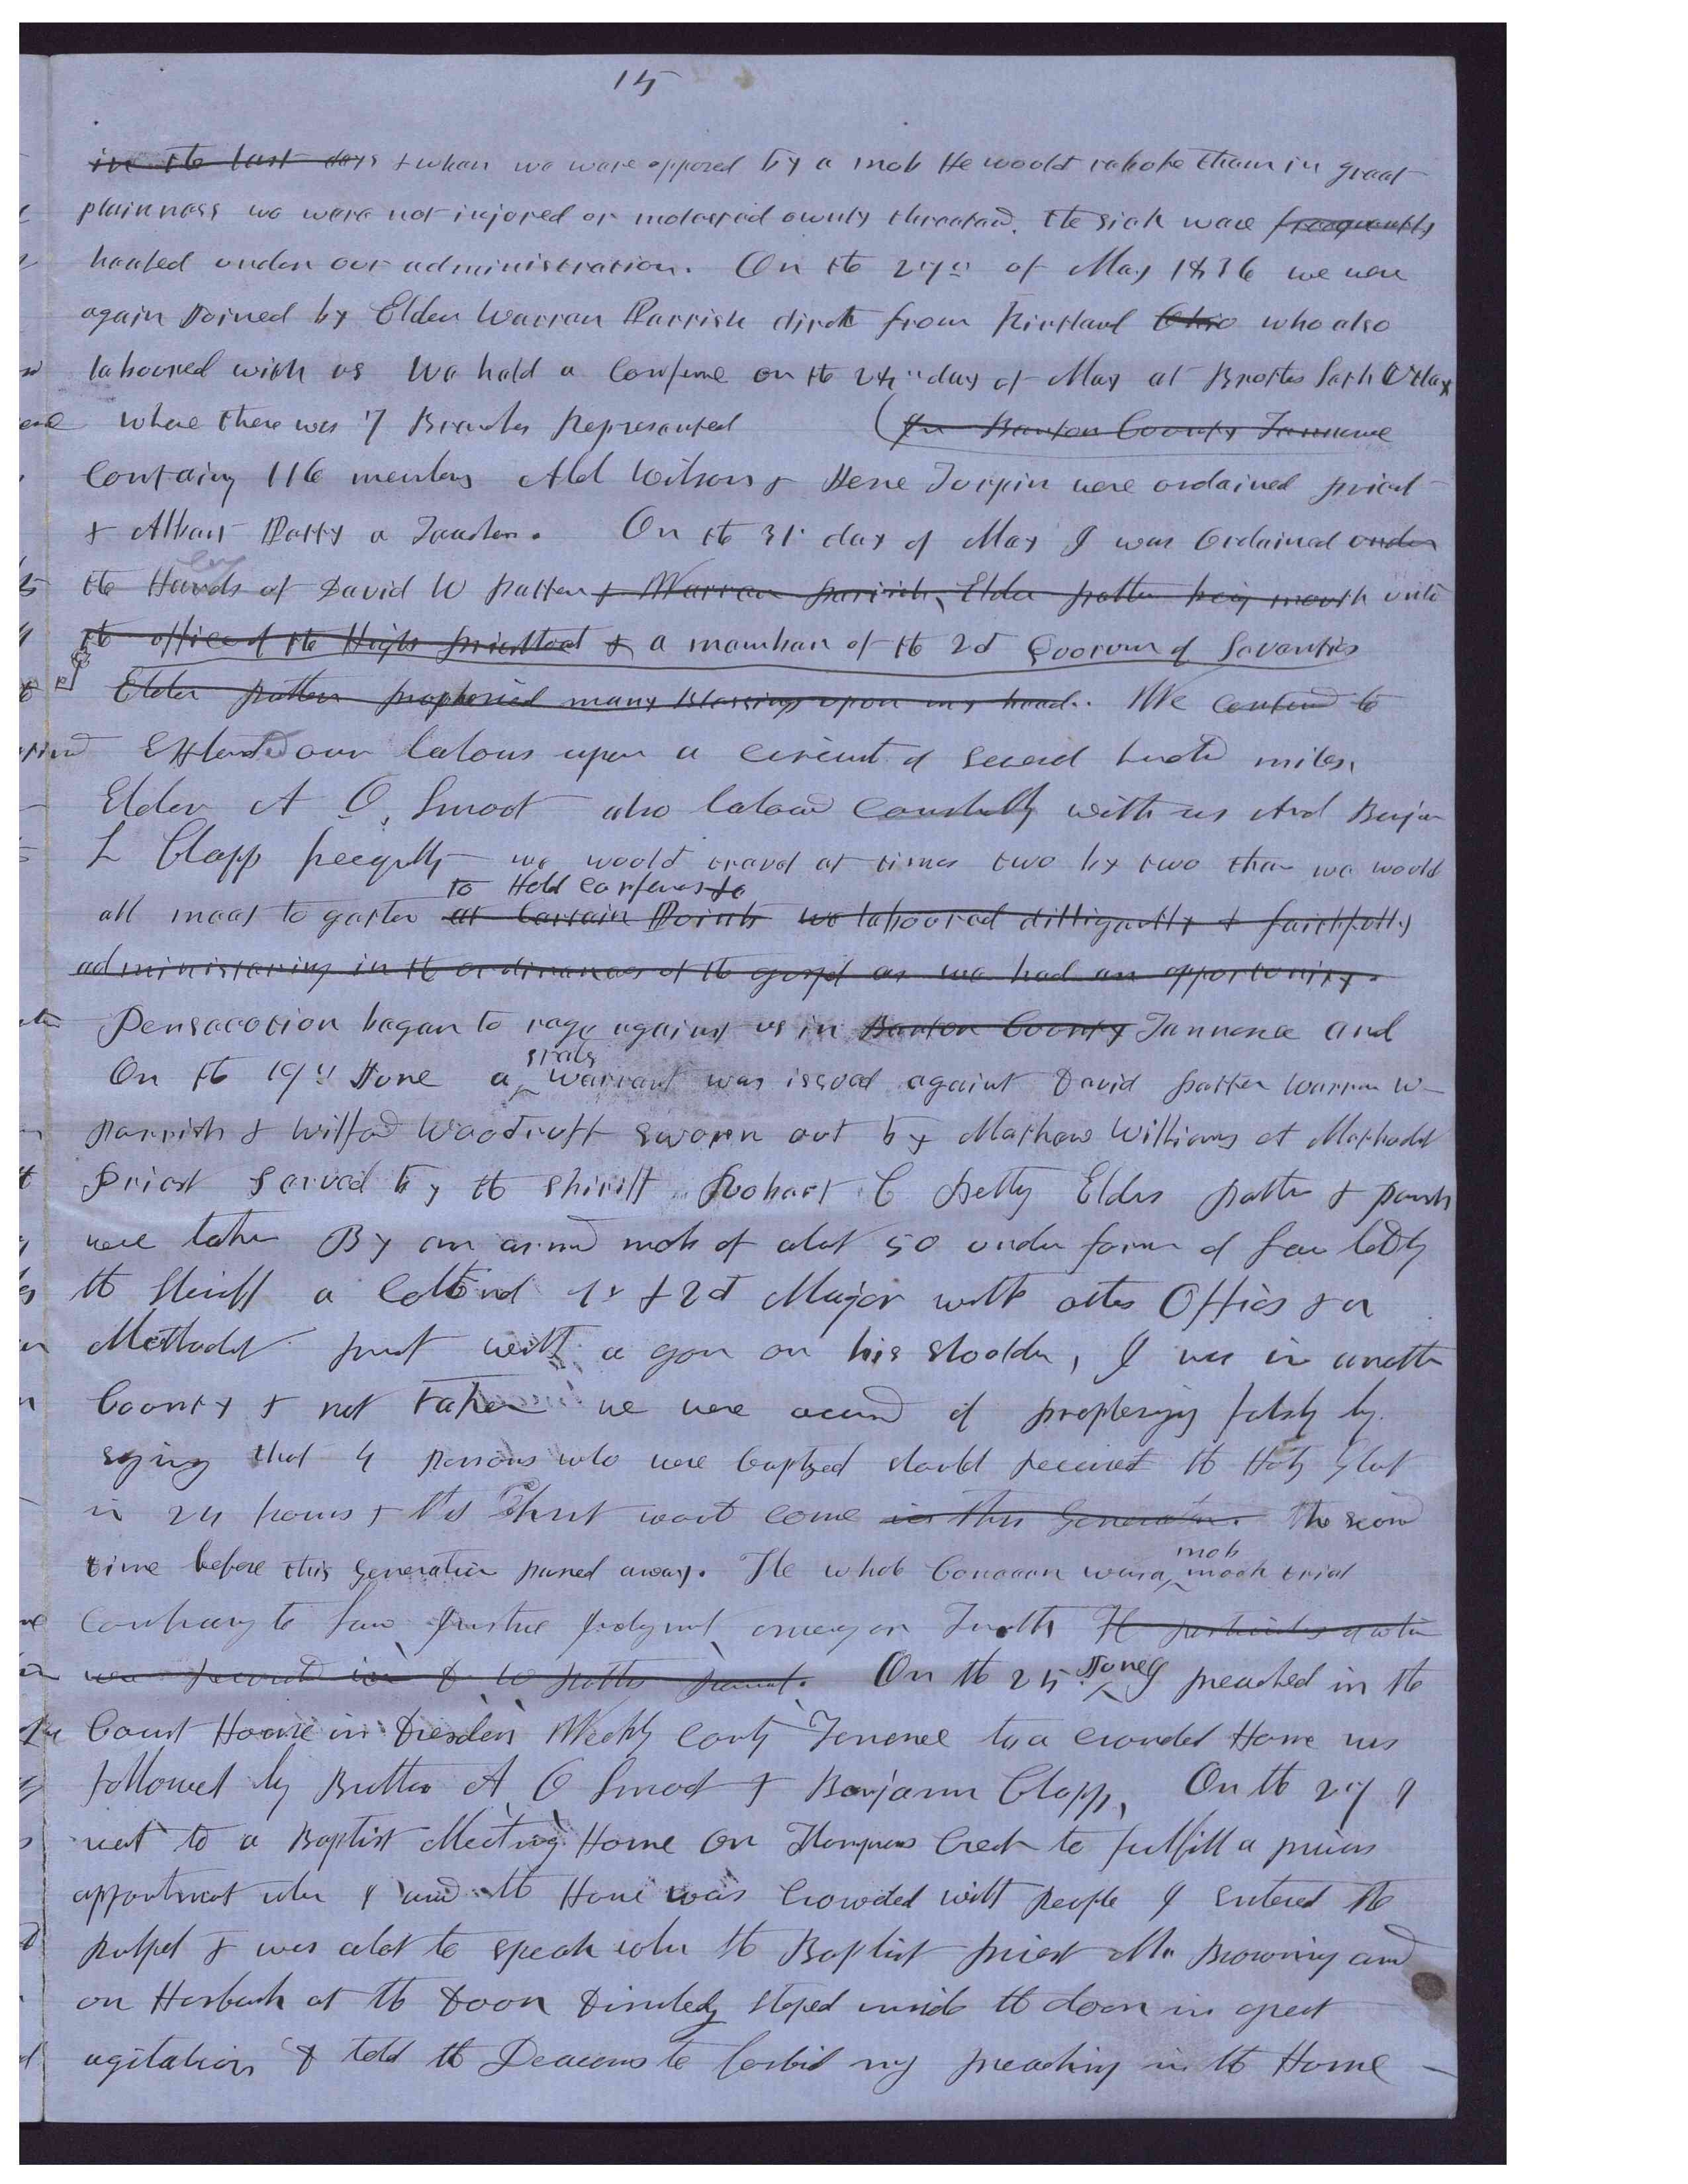 15
in the last days & when we ware opposed by a mob He would rebuke them in great
plainness we ware not injored or molested ownly threatend. the sick ware frequently
healed under our administration. On the 27th of May 1836 we were
again Joined by Elder Warran Parrish direct from Kirtland Ohio who also
laboured with us We held a Confrence on the 28th day of May at Brother Seth Utley
where there was 7 Branches Represented (In Benton County Tennessee
Containg 116 members Abel Wilson & Jesse Turpin were ordained priest
& Albert Petty a Teacher. On the 31st day of May I was Ordained under
by
the Hands of David W Patten & Warren parrish, Elder patten being mouth unto
the office of the High priesthood & a member of the 2d Quorum of Seventies
Elder patten prophesied many Blessings upon my head. We continued to
Extend our labours upon a circuit of several hundred miles,
Elder A O, Smoot also labored constantly with us And Benjamin
L Clapp frequently we would travel at times two by two then we would
to Hold conferences &c
all meet to gether at Certain Points we laboured dilligently & faithfully
administering in the ordinances of the gospel as we had an opportunity.
Persecution began to rage against us in Benton County Tennessee and
On the 19th June a warrant was issued against David patten Warren W
state
Parrish & Wilford Woodruff sworn out by Mathew Williams a Methodist
Priest served by the Shiriff Robert C Petty Elders patten & parrish
were taken By an armed mob of about 50 under form of Law led by
the Sheriff a Colonel 1st & 2d Major with other Officers & a
Methodist priest with a gun on his shoulder, I was in another
County & not Taken we were accused of prophesying falsely by
saying that 4 persons who were baptized should received the Holy Ghost
in 24 hours & that Christ would come in this Generation. The second
time before this generation passed away. The whole Concern was a mock trial
mob
Contrary to Law Justice Judgment mercy or Truth The particulars of which
were recorded in D W patten Journal. On the 25 June I preached in the
Court House in Dresden Weekly County Tennessee to a crowded House was
followed by Brother A O Smoot & Benjamin Clapp, On the 27 I
went to a Baptist Meeting House on Thompsons Creek to fulfill a previous
appointment when I arrived the House was Crowded with people I entered the
pulpet & was about to speak when the Baptist priest Mr Browning arrived
on Horseback at the Door Dismounted steped inside the door in great
agitation & told the Deacons to forbid my preaching in the House